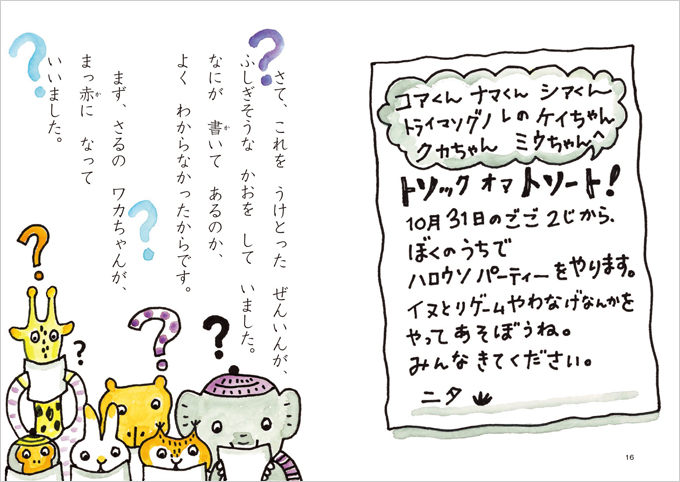 コアくん ナマくん シアくん
トライマソグノレの ケイちゃん
クカちゃん ミウちゃんへ
トソック オマ トソート!
10月31日のごご2じから、
ぼくのうちで
ハロウソパーティーをやります。
イヌとりゲームやわなげなんかを
やってあそぼうね。
みんなきてください。
ニタ
16
さて、これを うけとった ぜんいんが、
ふしぎそうな かおを して いました。
なにが 書いて あるのか、
よく わからなかったからです。
まず、さるの ワカちゃんが、
まっ赤に なって
いいました。